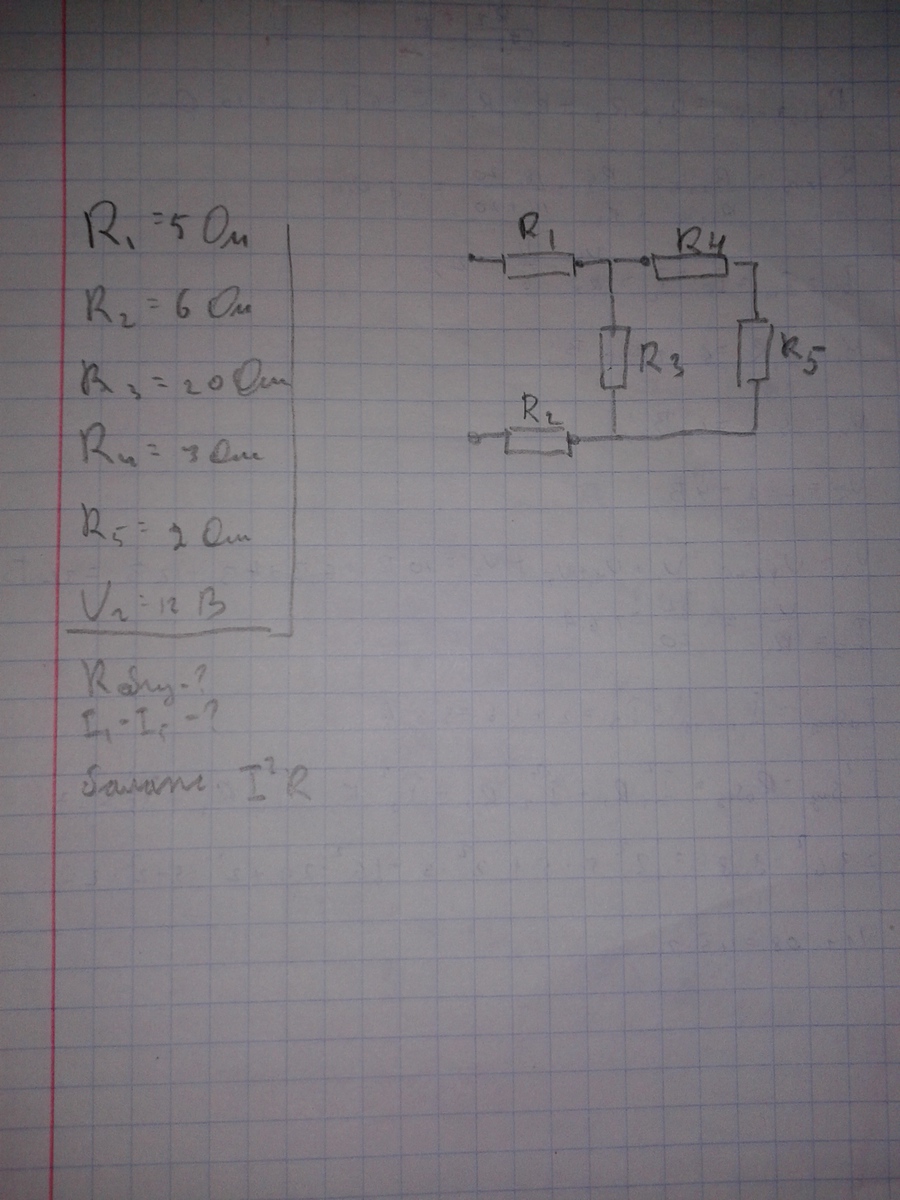 R₁ = 5 Ом
R₂ = 6 Ом
R₃ = 20 Ом
R₄ = 3 Ом
R₅ = 2 Ом
U₂ = 12 В
R общ - ?
I₁ - I₅ - ?
баланс I²R
R₁
R₄
R₃
R₅
R₂